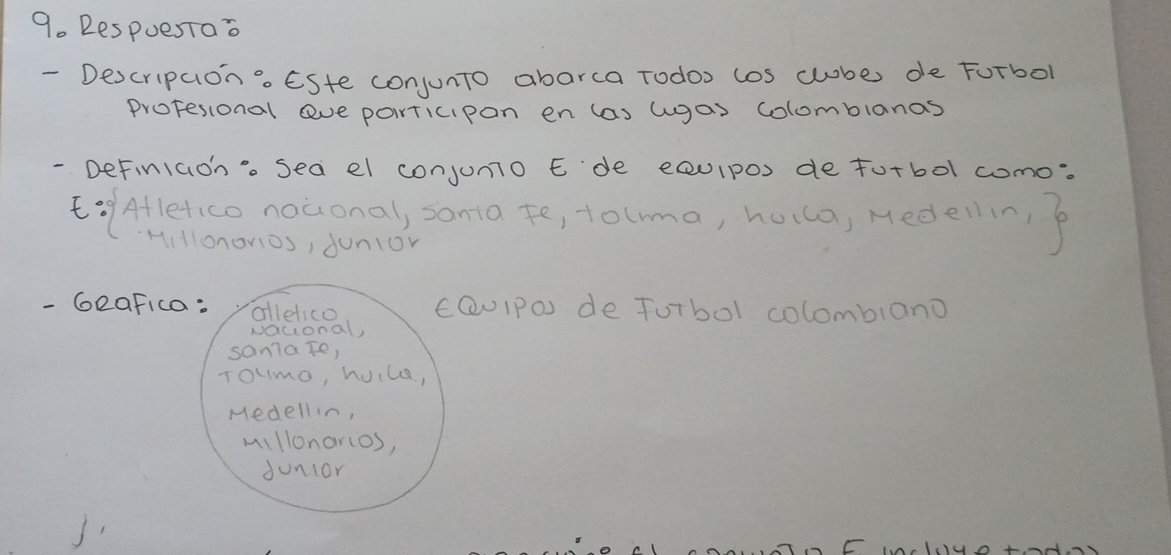 9. Respuesta:
- Descripción: Este conjunto abarca todos los clubes de Futbol
Profesional que participan en las ligas colombianas
- Definición: Sea el conjunto E de equipos de futbol como:
E:{Atletico nacional, santa fe, tolima, huila, Medellin, }
Millonarios, junior
- Grafica:
Equipos de Futbol colombiano
atletico
nacional,
santa fe,
tolima, huila,
Medellin,
Millonarios,
junior
el conjunto E incluye todos